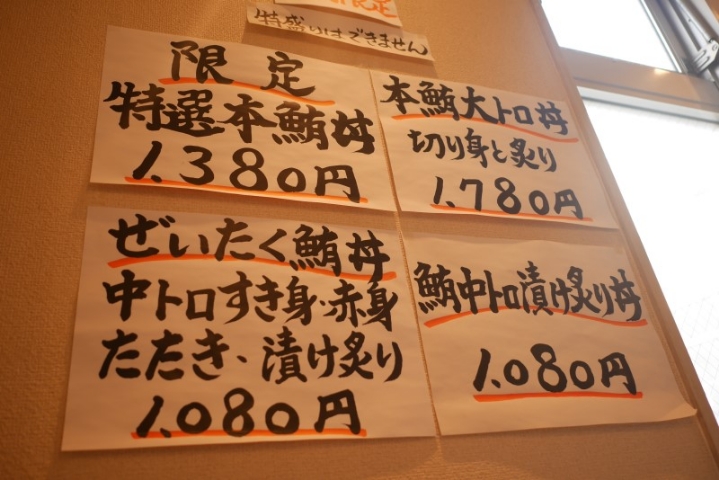 限定
特盛りはできません
限定
特選本鮪丼
1.380円
本鮪大トロ丼
切り身と炙り
1.780円
ぜいたく鮪丼
中トロすき身・赤身
たたき、漬け炙り
1.080円
鮪中トロ漬け炙り丼
1.080円